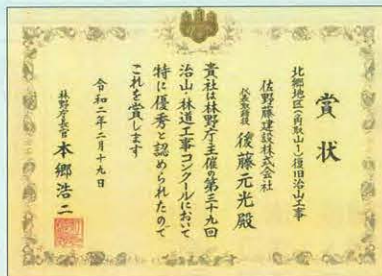 賞状
北郷地区(角取山1)復旧治山工事
佐野藤建設株式会社
代表取締役 後藤元光殿
貴社は林野庁主催の第三十九回
治山・林道工事コンクールにおいて
特に優秀と認められたので
これを賞します
令和二年二月十九日
林野庁長官 本郷浩二